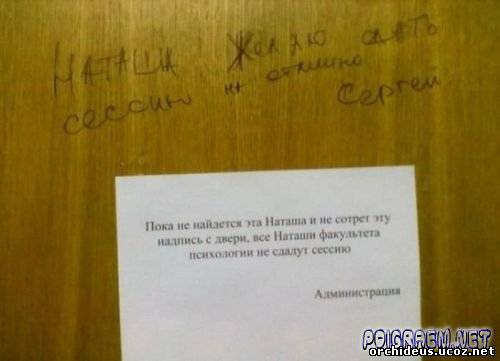 НАТАША ЖЕЛАЮ СДАТЬ
сессию на отлично
Сергей
Пока не найдется эта Наташа и не сотрет эту
надпись с двери, все Наташи факультета
психологии не сдадут сессию
Администрация
POIGRAEM.NET
orchideus.ucoz.net